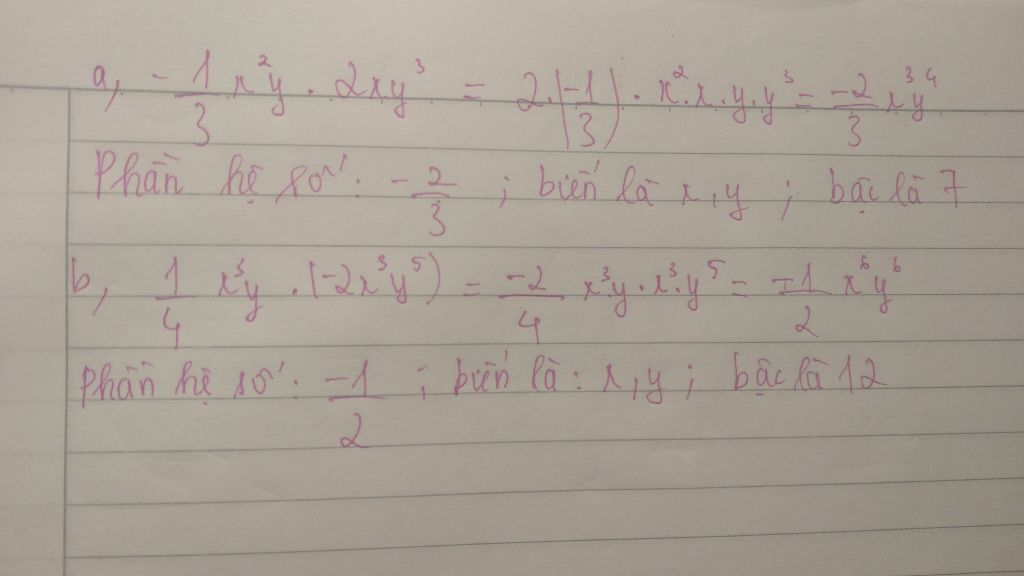 a, -1/3 x²y . 2xy³ = 2.(-1/3) . x².x.y.y³ = -2/3 x³y⁴
Phần hệ số: -2/3 ; biến là x,y ; bậc là 7
b, 1/4 x³y . (-2x³y⁵) = -2/4 x³.y.x³.y⁵ = -1/2 x⁶y⁶
phần hệ số: -1/2 ; biến là: x,y ; bậc là 12